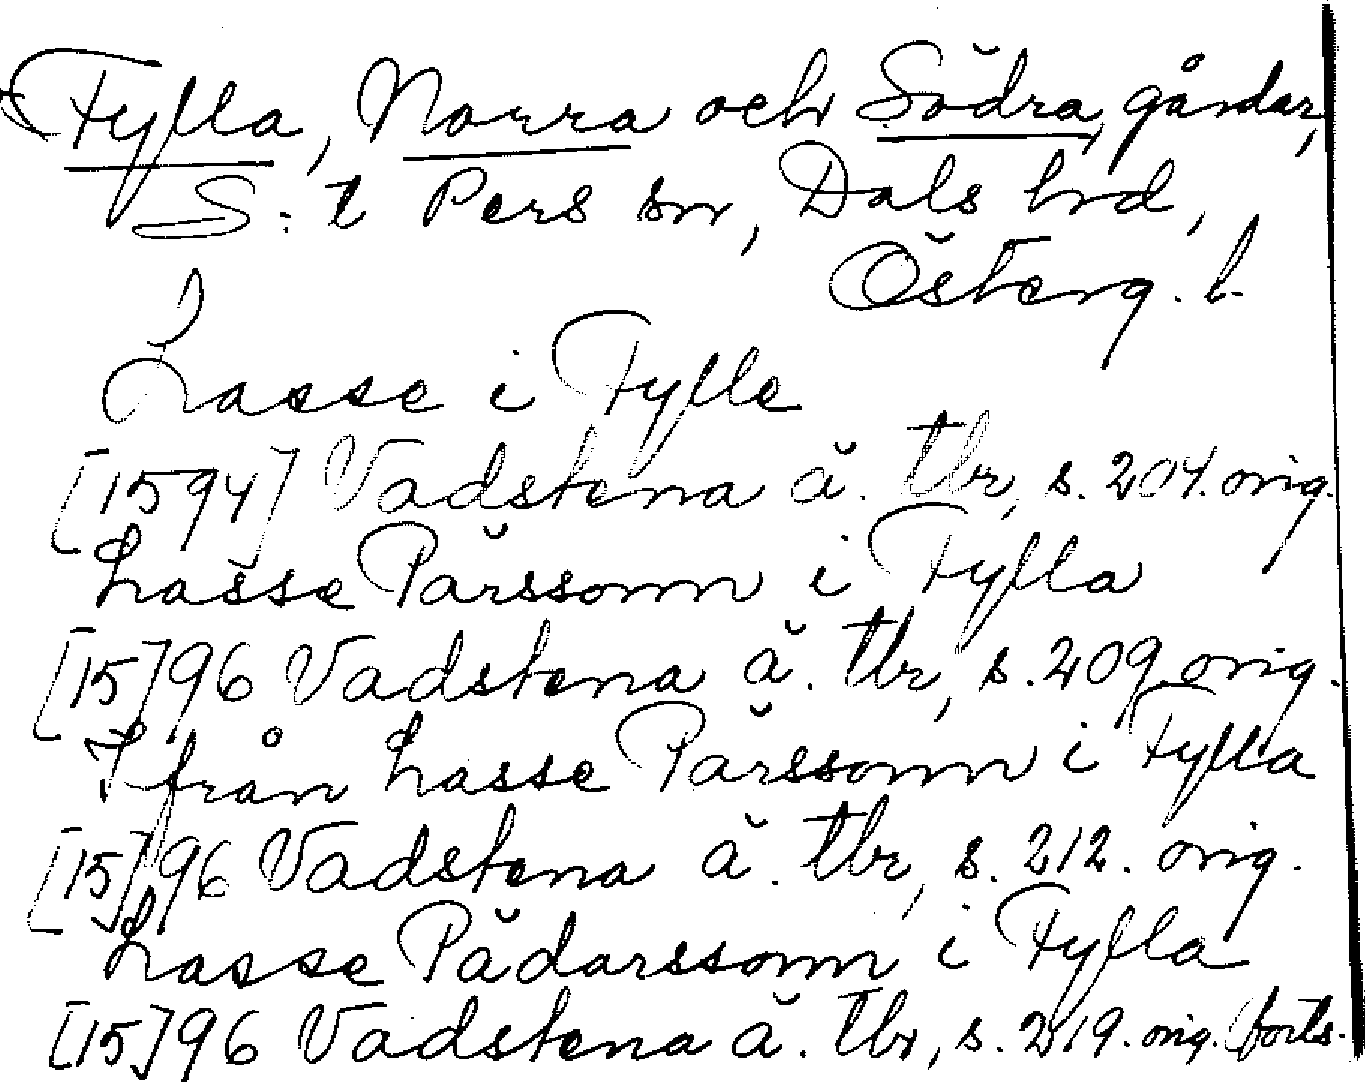 Fylla, Norra och Södra, gårdar,
S:t Pers sn, Dals hd,
Österg. l.
Lasse i Fylle
[1594] Vadstena ä. tbr, s. 204. orig.
Lasse Pärssonn i Fylla
[15]96 Vadstena ä. tbr, s. 209. orig.
I från Lasse Pärssonn i Fylla
[15]96 Vadstena ä. tbr, s. 212. orig.
Lasse Pädarssonn i Fylla
[15]96 Vadstena ä. tbr, s. 219. orig. (forts.